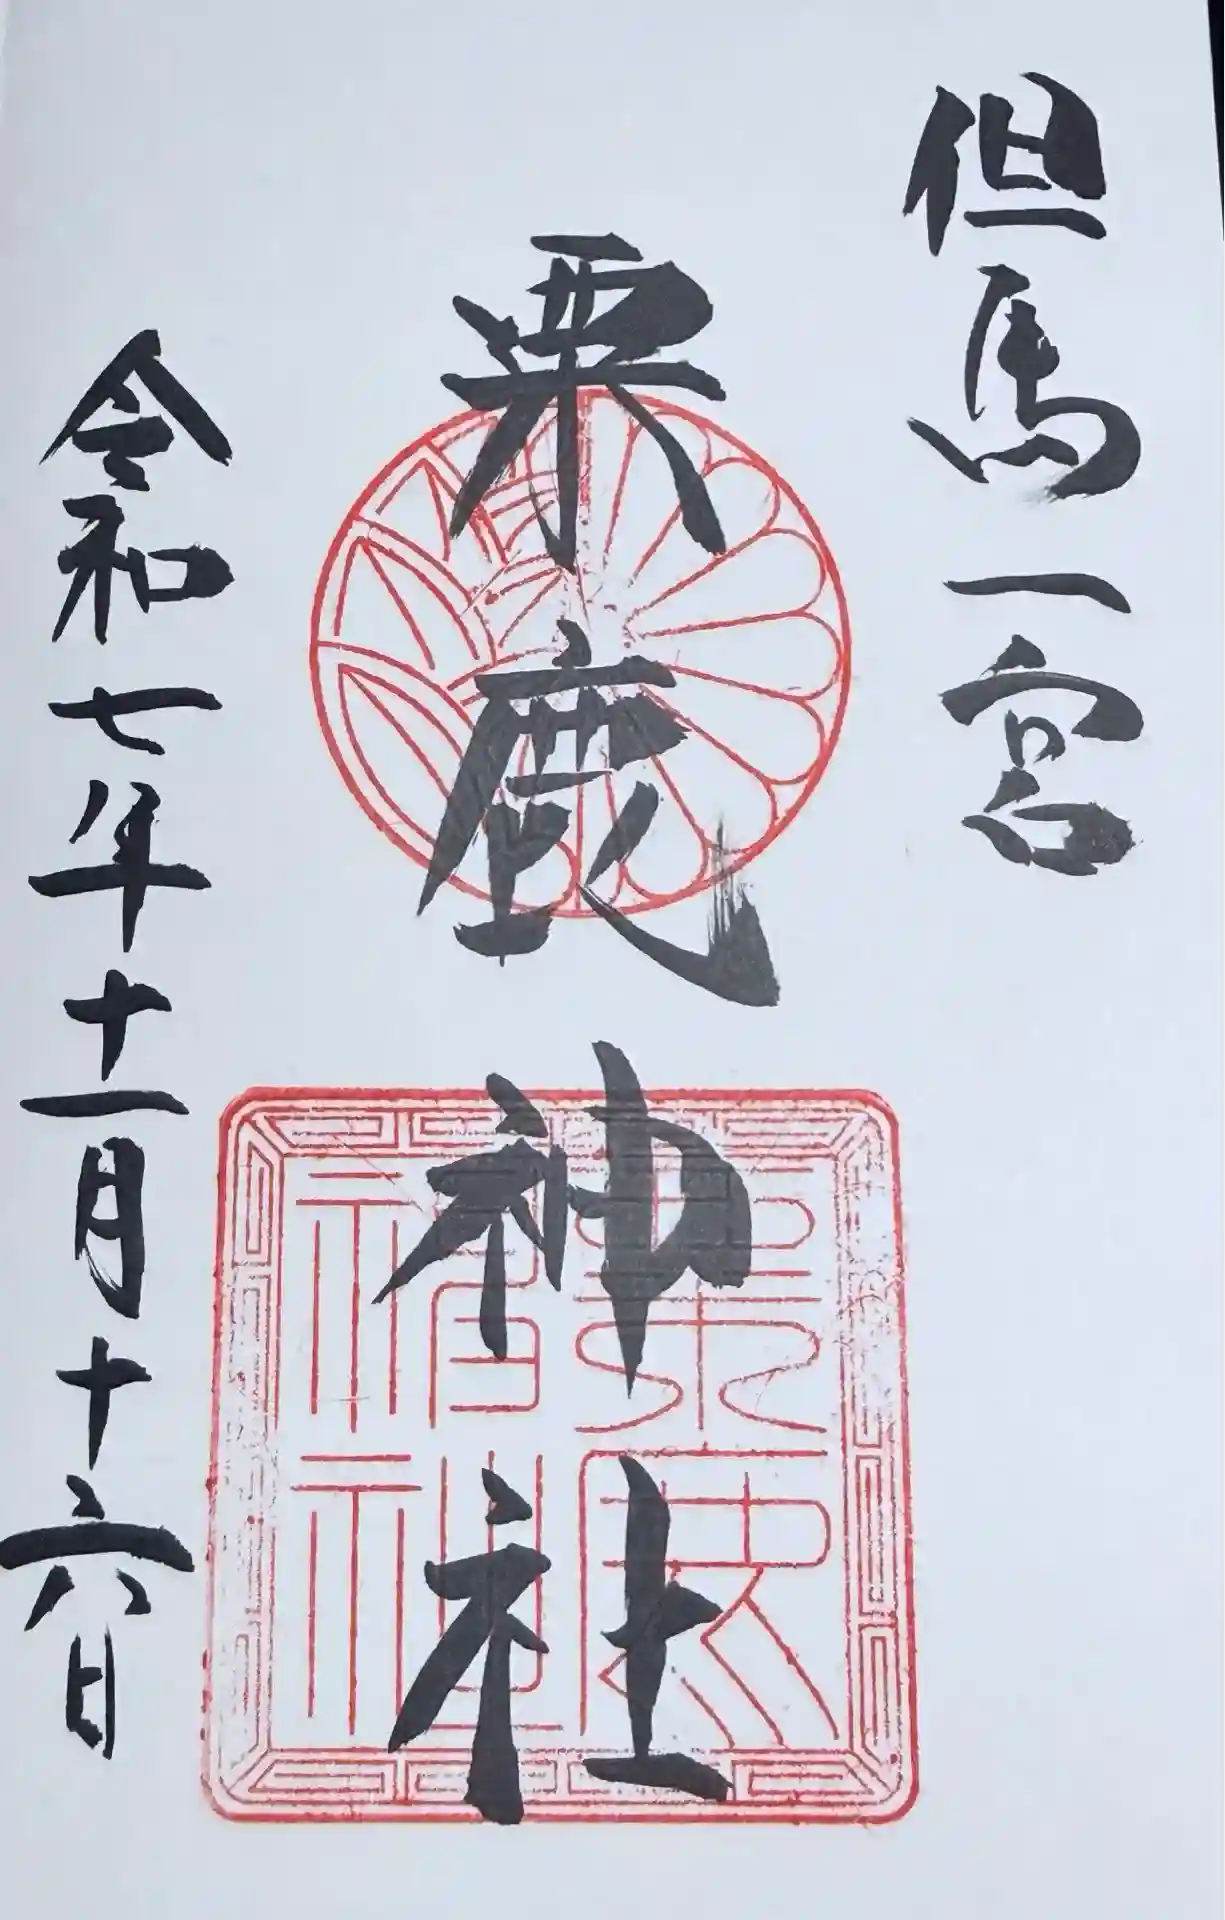 但馬一宮
粟鹿神社
令和七年十一月十六日
粟鹿神社